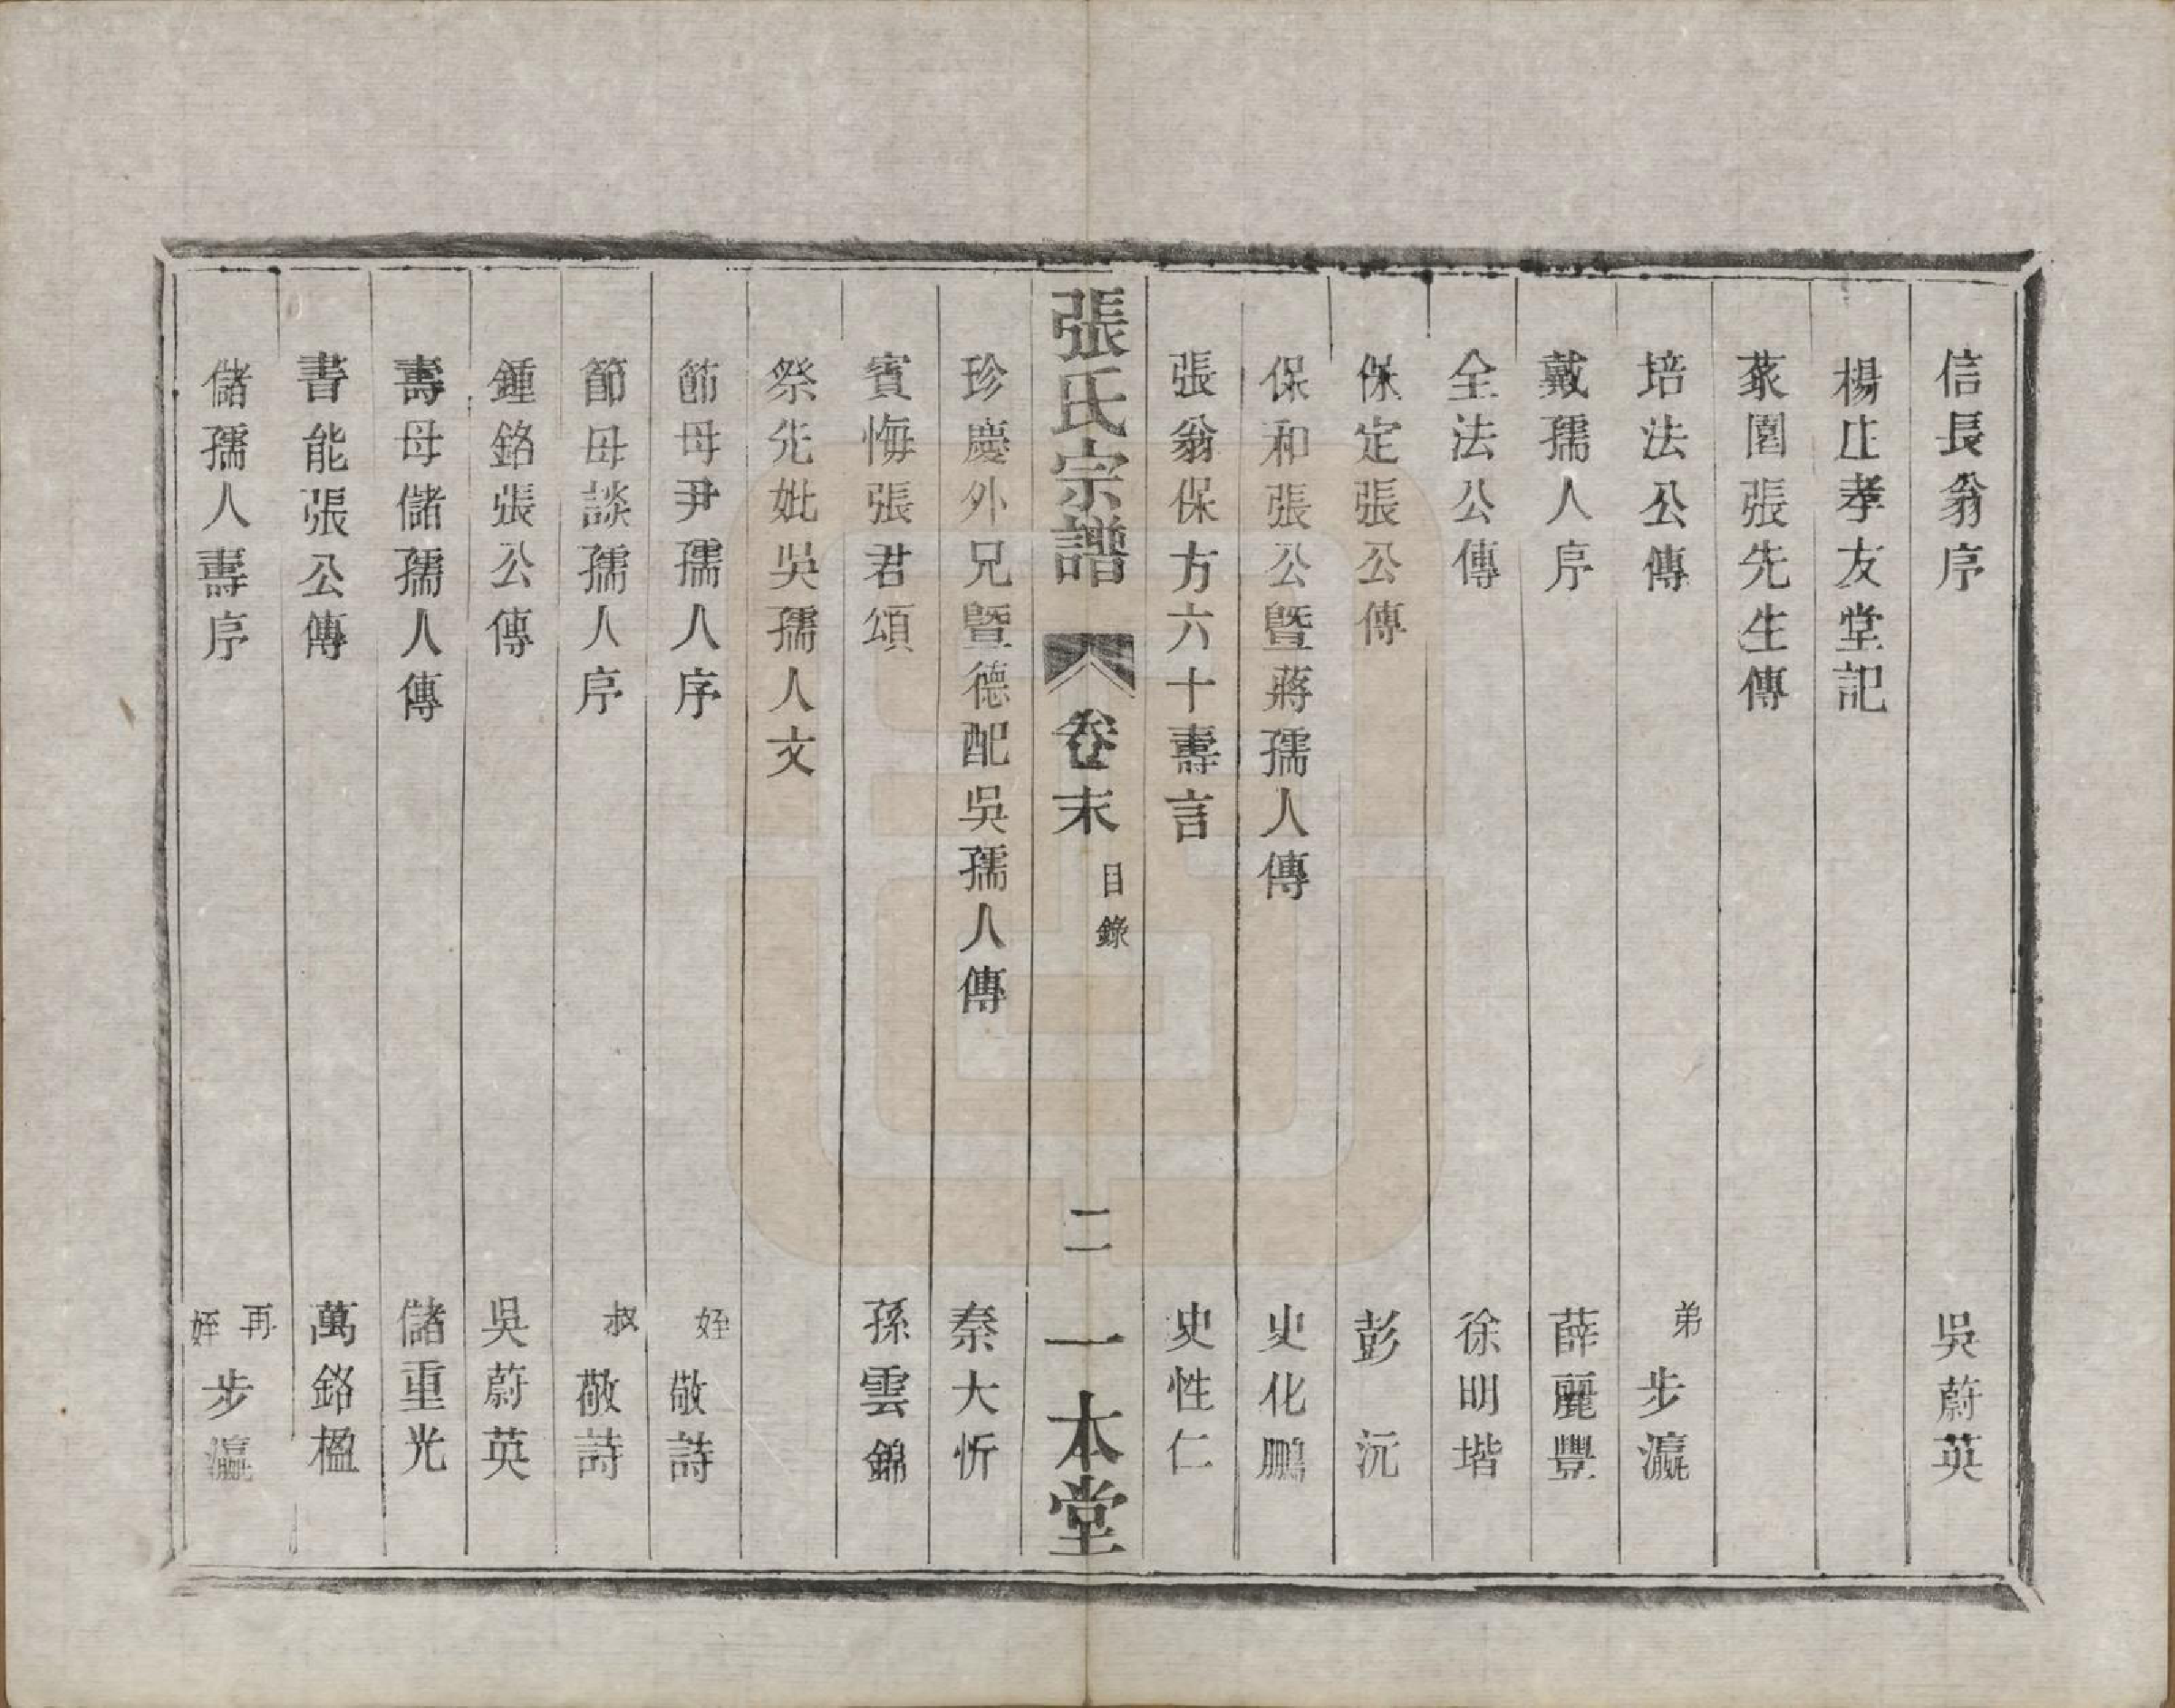 信長翁序　吳蔚英
楊庄孝友堂記
菉園張先生傳
培法公傳　弟步瀛
戴孺人序　薛麗豐
全法公傳　徐明堦
保定張公傳　彭沅
保和張公暨蔣孺人傳　史化鵬
張翁保方六十壽言　史性仁
張氏宗譜　卷末　目錄　二　一本堂
珍慶外兄暨德配吳孺人傳　秦大忻
賓悔張君頌　孫雲錦
祭先妣吳孺人文
節母尹孺人序　姪敬詩
節母談孺人序　叔敬詩
鍾銘張公傳　吳蔚英
壽母儲孺人傳　儲重光
書能張公傳　萬銘楹
儲孺人壽序　再姪步瀛